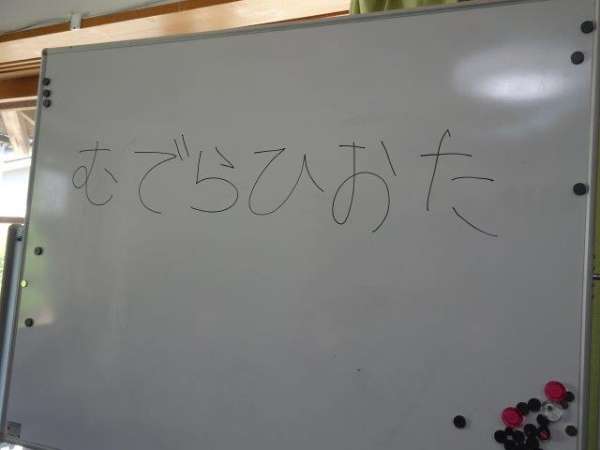 むでらひおた